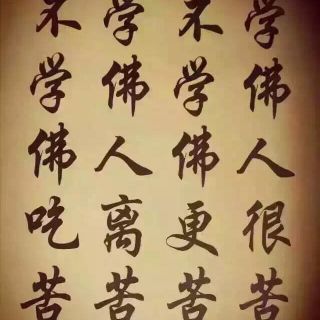 学佛人很苦
不学佛更苦
学佛人离苦
不学佛吃苦